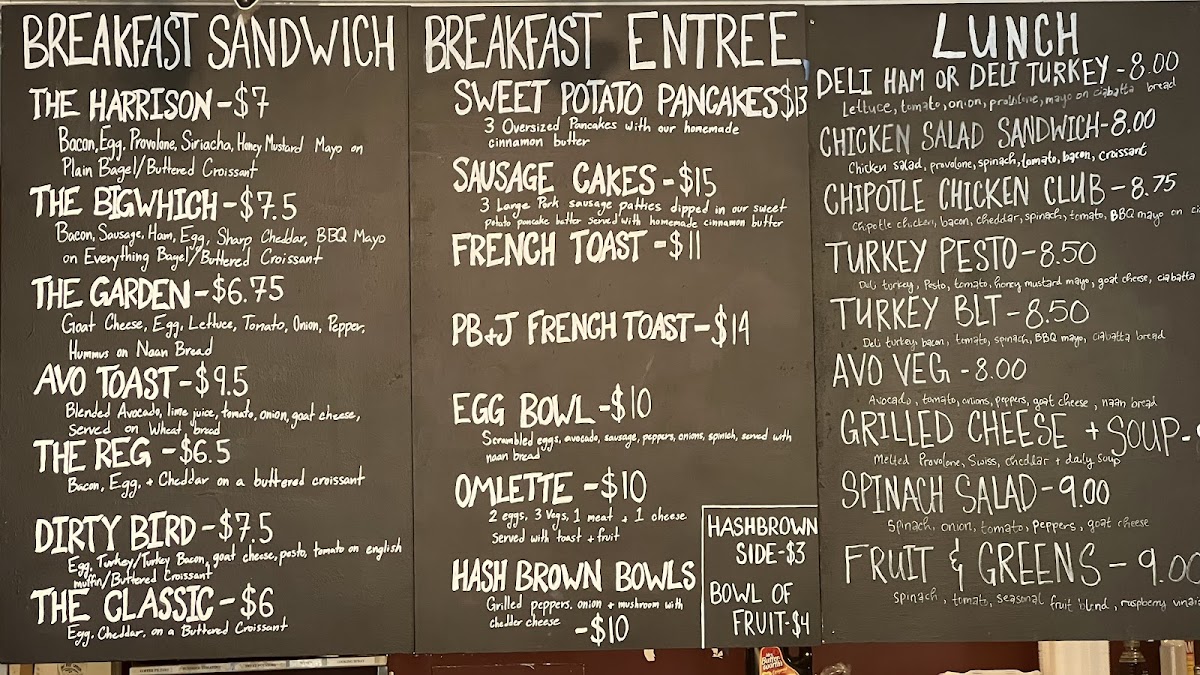 BREAKFAST SANDWICH
THE HARRISON-$7
Bacon, Egg, Provolone, Siriacha, Honey Mustard Mayo on
Plain Bagel/Buttered Croissant
THE BIGWHICH-$7.5
Bacon, Sausage, Ham, Egg, Sharp Cheddar, BBQ Mayo
on Everything Bagel/Buttered Croissant
THE GARDEN-$6.75
Goat Cheese, Egg, Lettuce, Tomato, Onion, Pepper,
Hummus on Naan Bread
AVO TOAST-$9.5
Blended Avocado, lime juice, tomato, onion, goat cheese,
Served on Wheat bread
THE REG-$6.5
Bacon, Egg, + Cheddar on a buttered croissant
DIRTY BIRD-$7.5
Egg, Turkey/Turkey Bacon, goat cheese, pesto, tomato on english
muffin/Buttered Croissant
THE CLASSIC-$6
Egg, Cheddar, on a Buttered Croissant
BREAKFAST ENTREE
SWEET POTATO PANCAKES $13
3 Oversized Pancakes with our homemade
cinnamon butter
SAUSAGE CAKES-$15
3 Large Pork sausage patties dipped in our sweet
potato pancake batter served with homemade cinnamon butter
FRENCH TOAST-$11
PB+J FRENCH TOAST-$14
EGG BOWL-$10
Scrambled eggs, avocado, sausage, peppers, onions, spinish, served with
naan bread
OMLETTE-$10
2 eggs, 3 Vegs, 1 meat + 1 cheese
Served with toast + fruit
HASH BROWN BOWLS
Grilled peppers, onion + mushroom with
chedder cheese
-$10
HASHBROWN
SIDE-$3
BOWL OF
FRUIT-$4
LUNCH
DELI HAM OR DELI TURKEY-8.00
Lettuce, tomato, onion, provolone, mayo on ciabatta bread
CHICKEN SALAD SANDWICH-8.00
Chicken salad, provolone, spinach, tomato, bacon, croissant
CHIPOTLE CHICKEN CLUB-8.75
Chipotle chicken, bacon, cheddar, spinach, tomato, BBQ mayo on
TURKEY PESTO-8.50
Deli turkey, Pesto, tomato, honey mustard mayo, goat cheese, ciabatta
TURKEY BLT-8.50
Deli turkey, bacon, tomato, spinach, BBQ mayo, ciabatta bread
AVO VEG-8.00
Avocado, tomato, onions, peppers, goat cheese, naan bread
GRILLED CHEESE + SOUP-
Melted Provolone, Swiss, cheddar + daily soup
SPINACH SALAD-9.00
Spinach, onion, tomato, peppers, goat cheese
FRUIT & GREENS-9.00
Spinach, tomato, seasonal fruit blend, raspberry